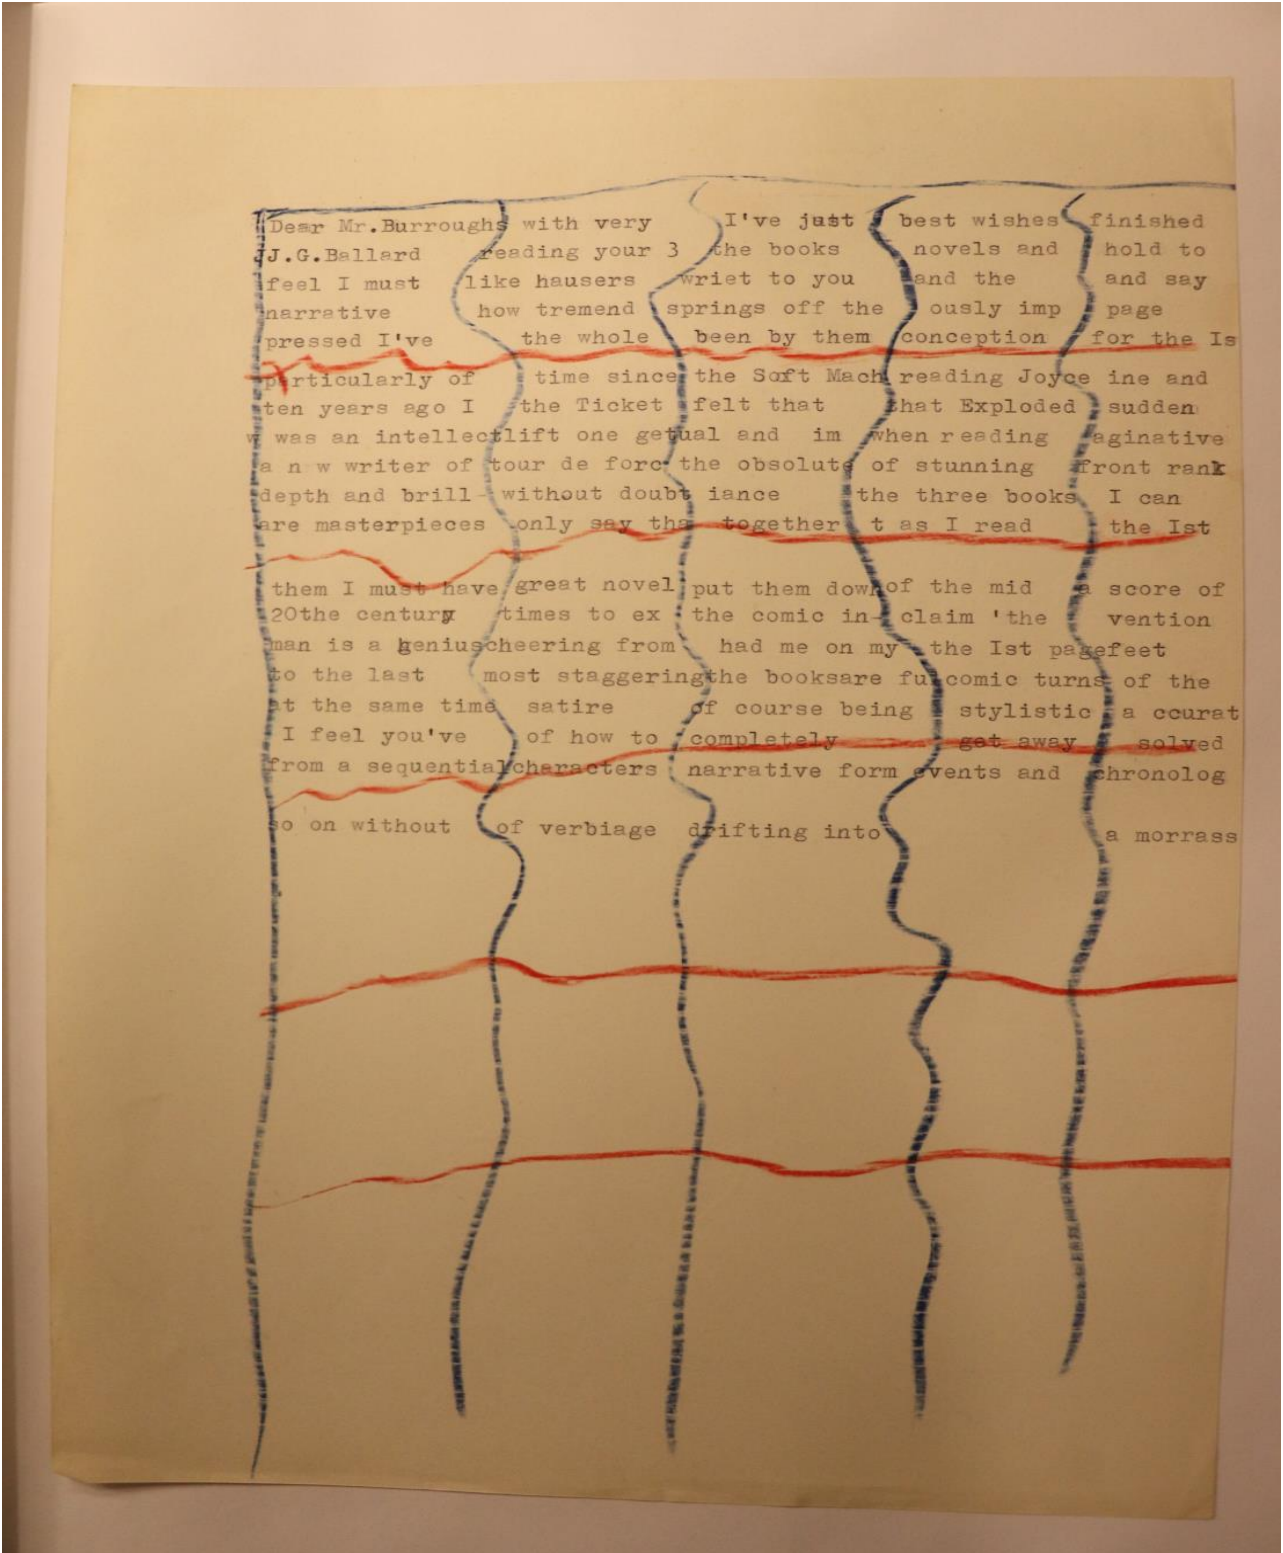 Dear Mr.Burroughs with very I've just best wishes finished
JJ.G.Ballard reading your 3 the books novels and hold to
feel I must like hausers wriet to you and the and say
narrative how tremend springs off the ously imp page
pressed I've the whole been by them conception for the Is
particularly of time since the Soft Mach reading Joyce ine and
ten years ago I the Ticket felt that that Exploded sudden
was an intellectlift one getual and im when reading aginative
a n w writer of tour de forc the obsolute of stunning front rank
depth and brill- without doubt iance the three books I can
are masterpieces only say tha together t as I read the Ist
them I must have great novel put them down of the mid a score of
20the century times to ex the comic in- claim 'the vention
man is a geniuscheering from had me on my the Ist pagefeet
to the last most staggeringthe booksare ful comic turns of the
at the same time satire of course being stylistic a ccurat
I feel you've of how to completely get away solved
from a sequential characters narrative form events and chronolog
so on without of verbiage drifting into a morrass